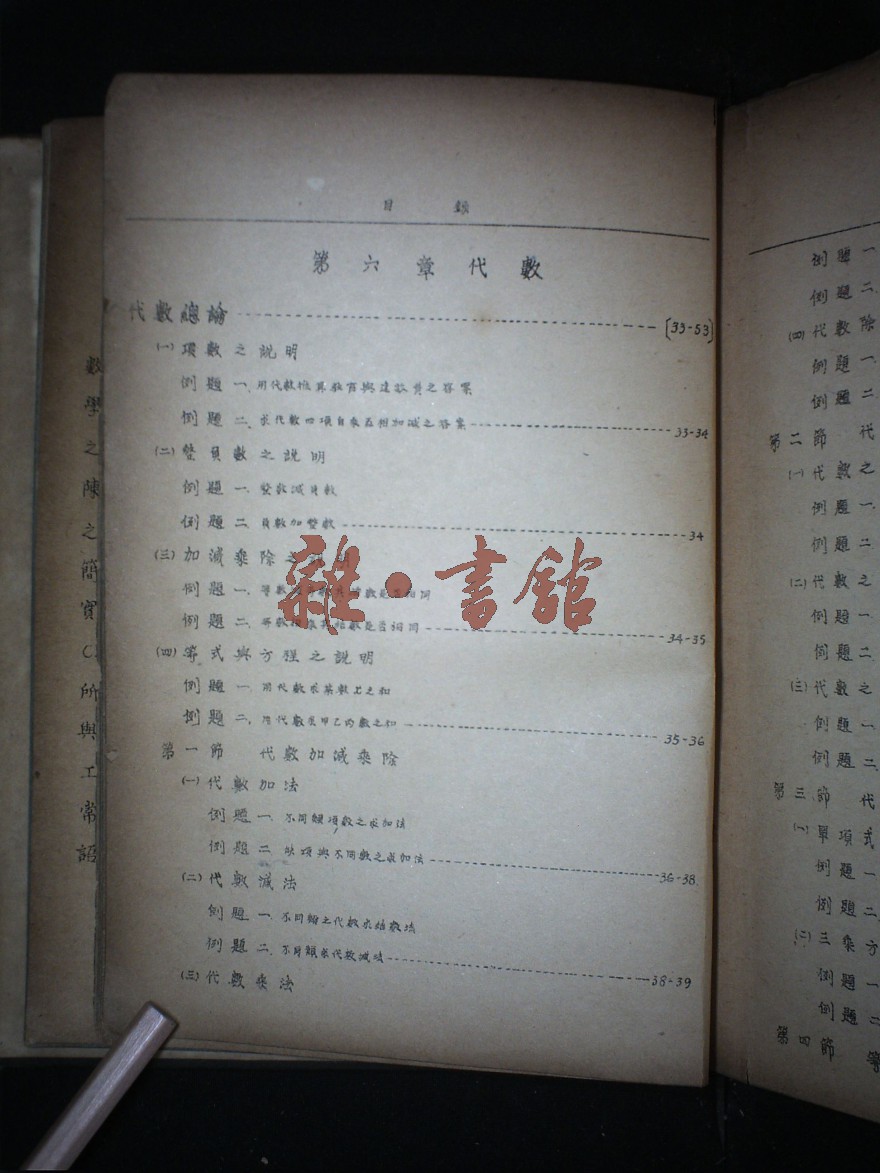 目錄
第六章代數
代數總論 [33-53]
(一)項數之說明
例題一.用代數推算教育與建設費之答案
例題二.求代數四項自乘互相加減之答案 33-34
(二)整負數之說明
例題一.整數減負數
例題二.負數加整數 34
(三)加減乘除之說明
例題一.等數
例題二. 是否相同 34-35
(四)等式與方程之說明
例題一.用代數求某數上之和
例題二.用代數求甲乙丙數之和 35-36
第一節 代數加減乘除
(一)代數加法
例題一.不同類項數之求加法
例題二.缺項與不同數之求加法 36-38
(二)代數減法
例題一.不同 之代數求結數法
例題二.不同類求代數減法 38-39
(三)代數乘法
數學之陳之簡實 所與工常語
雜·書館
例題一.
例題二.
(四)代數除
例題一.
例題二
第二節 代
(一)代數之
例題一.
例題二
(二)代數之
例題一
例題二
(三)代數之
例題一
例題二.
第三節 代
(一)單項式
例題一
例題二.
(二)三乘方
例題一
例題二
第四節 等